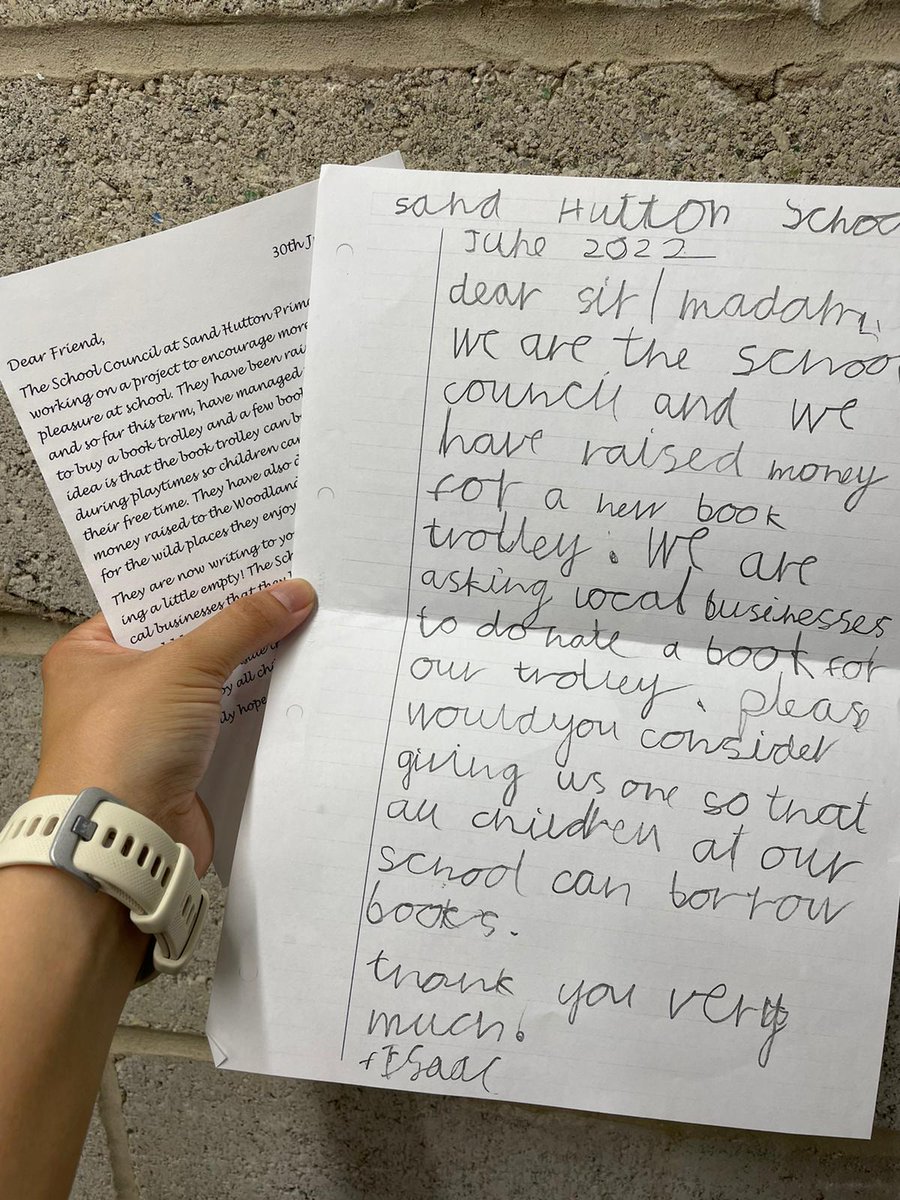 30th
Dear Friend,
The School Council at Sand Hutton
working on a project to encourage more
pleasure at school. They have been
and so far this term, have managed
to buy a book trolley and a few
idea is that the book trolley can
during playtimes so children
their free time. They have also
money raised to the
for the wild places they enjoy
They are now writing to
ing a little empty! The
cal businesses that
by all
hope
sand Hutton
June 2022
dear sir/madam,
we are the
council and we
have raised money
for a new book
trolley. We are
asking local businesses
to donate a book for
our trolley. please
would you consider
giving us one so that
all children at our
school can borrow
books.
thank you very
much.
Isaac